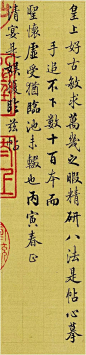 皇上好古敏求萬幾之暇精研八法是帖心摹
手追不下數十百本而
聖懷虛受猶臨池未輟也丙寅春正
清宴是